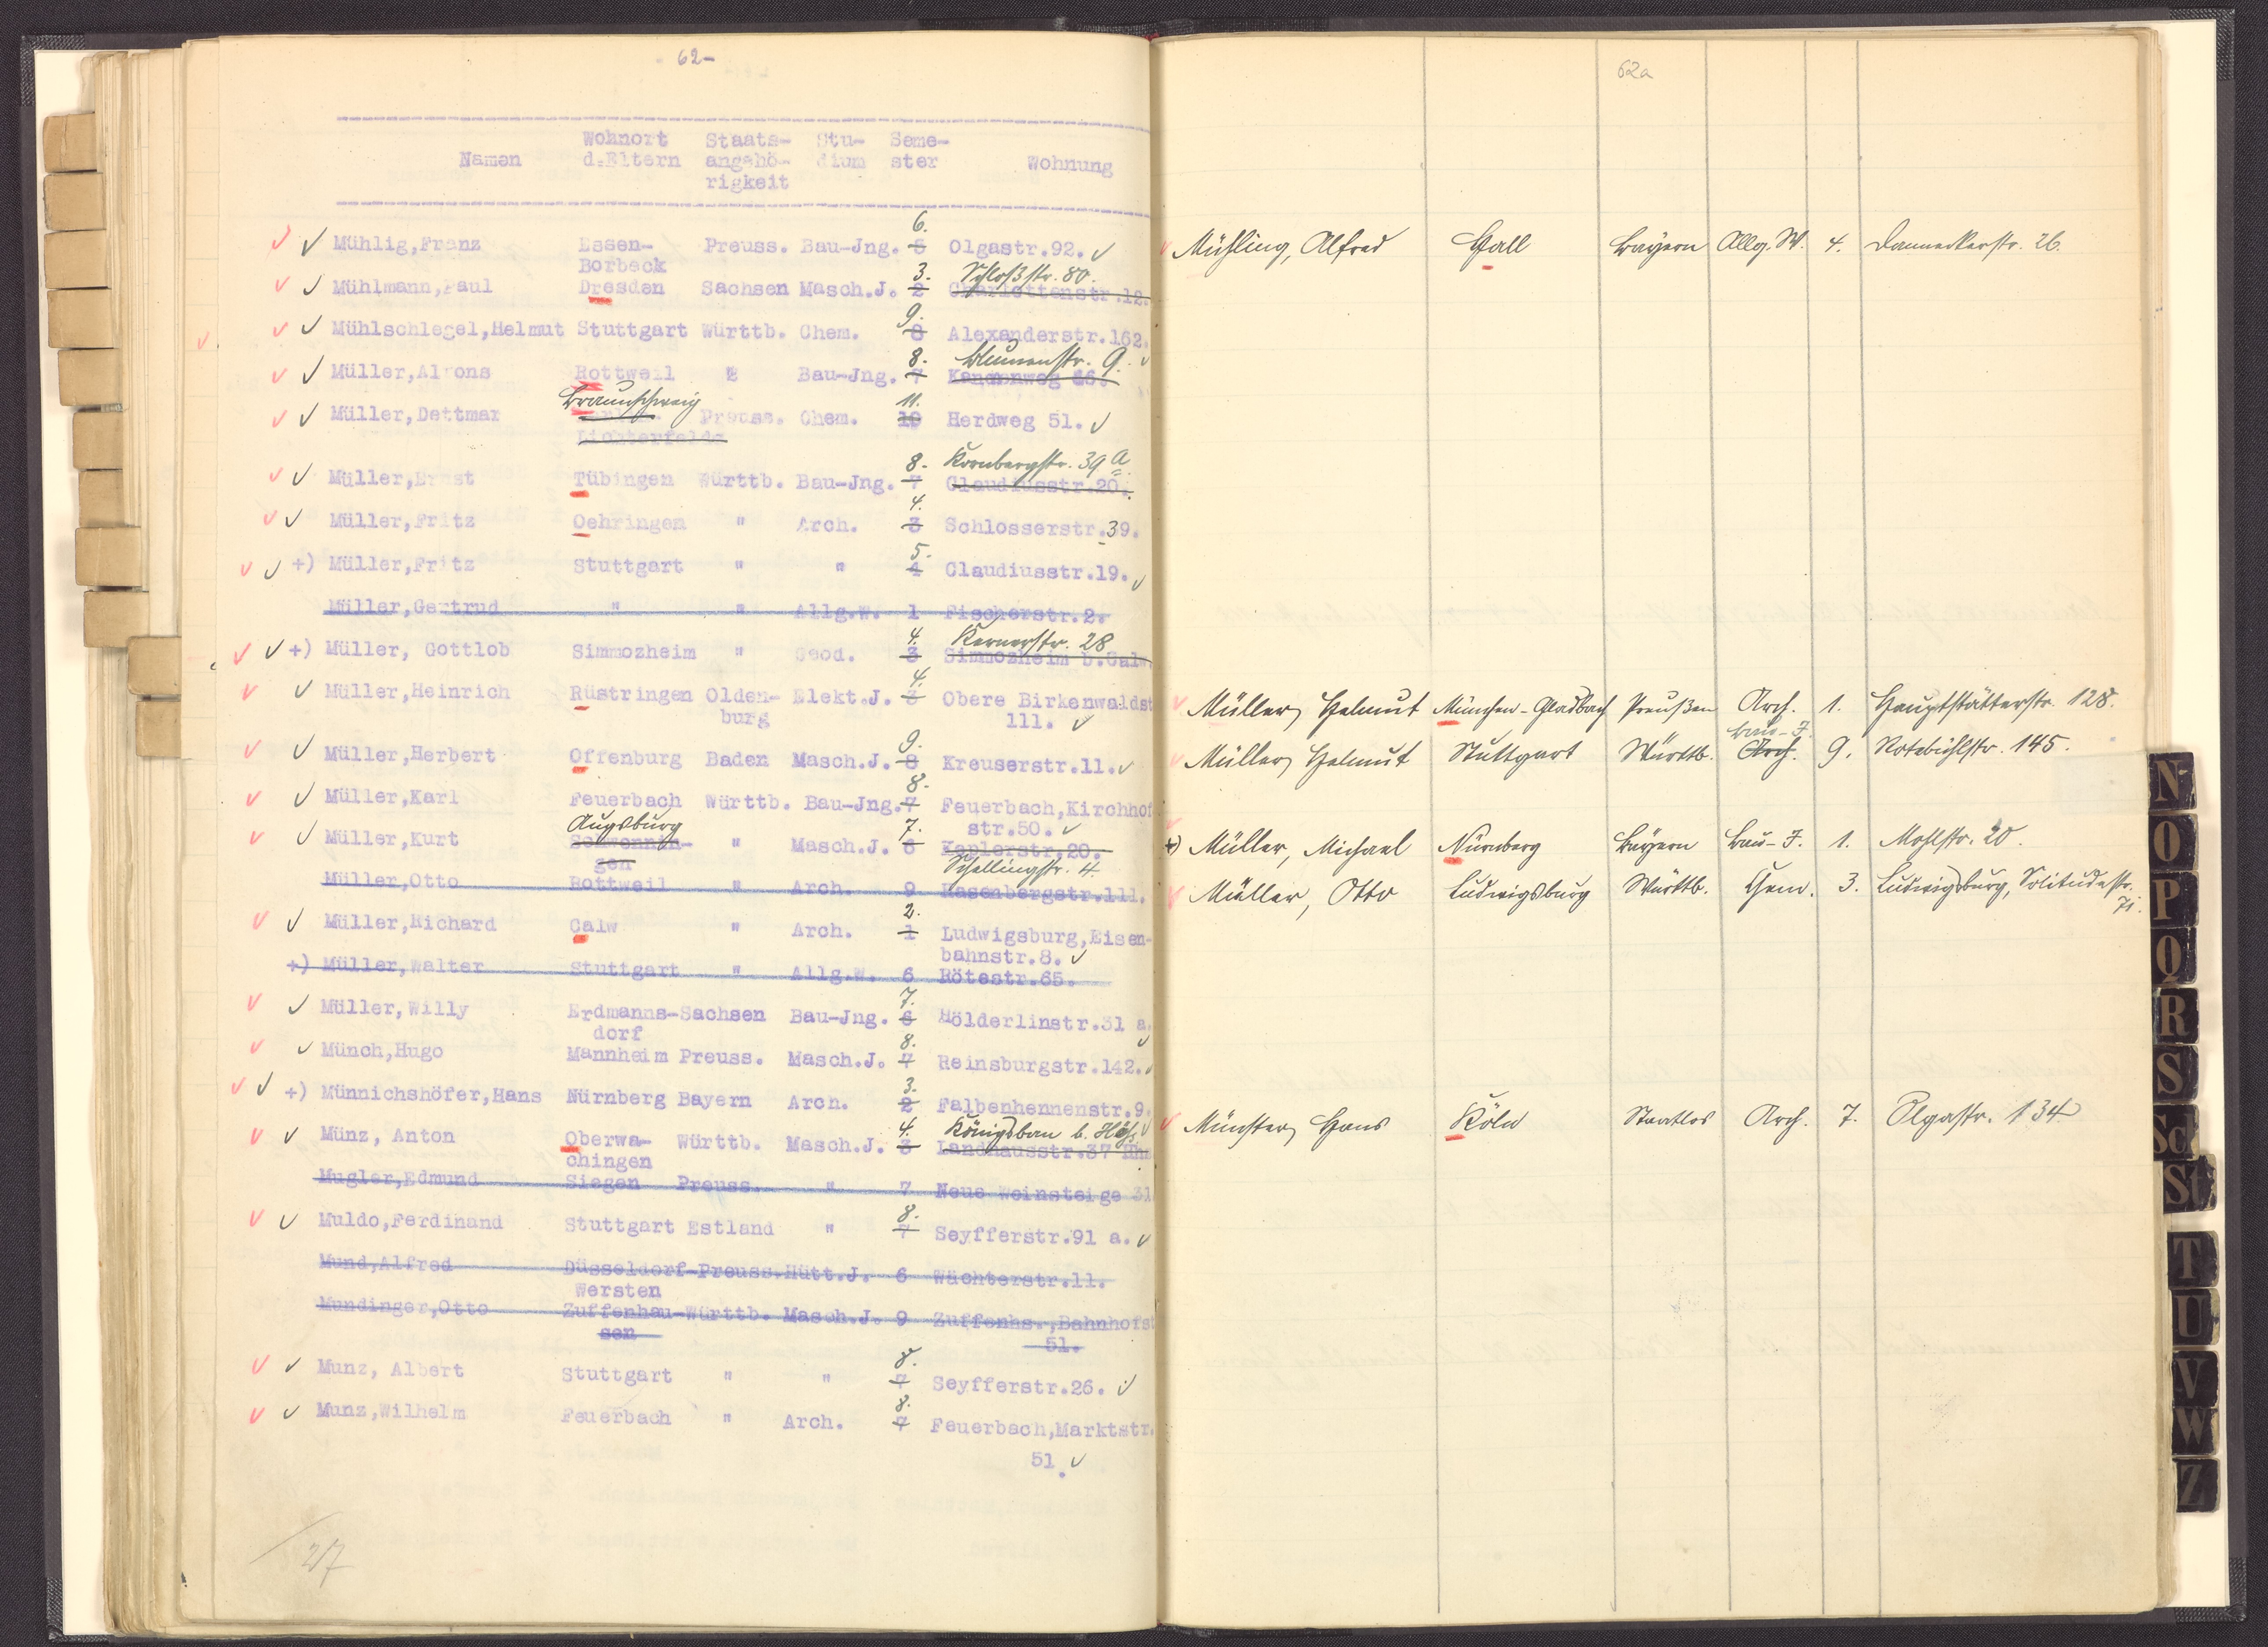 62-
Namen Wohnort d.Eltern Staats-angehö-rigkeit Stu-dium Seme-ster Wohnung
6.
Mühlig,Franz Essen- Preuss. Bau-Jng. 5 Olgastr.92.
Borbeck
3. Schloßstr. 80.
Mühlmann,Paul Dresden Sachsen Masch.J. 2 Charlottenstr.12.
9.
Mühlschlegel,Helmut Stuttgart Württb. Chem. 8 Alexanderstr.162.
8. Blumenstr. 9.
Müller,Alfons Rottweil " Bau-Jng. 7 Kanonenweg
Braunschweig 11.
Müller,Dettmar Preuss. Chem. 10 Herdweg 51.
Lichterfelde
8. Kornbergstr. 39 A
Müller,Ernst Tübingen Württb. Bau-Jng. 7 Claudiusstr.20.
4.
Müller,Fritz Oehringen " Arch. 3 Schlosserstr.39.
5.
+) Müller,Fritz Stuttgart " " 4 Claudiusstr.19.
Müller,Gertrud " " Allg.W. 1 Fischerstr.2.
4. Kernerstr. 28
+) Müller, Gottlob Simmozheim " Geod. 3 Simmozheim b.Calw
4.
Müller,Heinrich Rüstringen Olden- Elekt.J. 3 Obere Birkenwaldst
burg 111.
9.
Müller,Herbert Offenburg Baden Masch.J. 8 Kreuserstr.11.
8.
Müller,Karl Feuerbach Württb. Bau-Jng. 7 Feuerbach,Kirchhof
str.50.
Augsburg 7.
Müller,Kurt Schwennin- " Masch.J. 6 Keplerstr.20.
gen Schellingstr. 4
Müller,Otto Rottweil " Arch. 9 Hasenbergstr.111.
2.
Müller,Richard Calw " Arch. 1 Ludwigsburg,Eisen-
bahnstr.8.
+) Müller,Walter Stuttgart " Allg.W. 6 Rötestr.65.
7.
Müller,Willy Erdmanns- Sachsen Bau-Jng. 6 Hölderlinstr.31 a.
dorf
8.
Münch,Hugo Mannheim Preuss. Masch.J. 7 Reinsburgstr.142.
3.
+) Münnichshöfer,Hans Nürnberg Bayern Arch. 2 Falbenhennenstr.9.
4. Königsbau b.
Münz, Anton Oberwa- Württb. Masch.J. 3 Landhausstr.37
chingen
Mugler,Edmund Siegen Preuss. " 7 Neue Weinsteige 31
8.
Muldo,Ferdinand Stuttgart Estland " 7 Seyfferstr.91 a.
Mund,Alfred Düsseldorf- Preuss. Hütt.J. 6 Wächterstr.11.
Wersten
Mundinger,Otto Zuffenhau- Württb. Masch.J. 9 Zuffenhs.,Bahnhofst
sen 51.
8.
Munz, Albert Stuttgart " " 7 Seyfferstr.26.
8.
Munz,Wilhelm Feuerbach " Arch. 7 Feuerbach,Marktstr.
51.
27
62a
Mühling, Alfred Hall Bayern Allg. W. 4. Danneckerstr. 26.
Müller, Helmut München-Gladbach Preußen Arch. 1. Hauptstätterstr. 128.
Bau-J.
Müller, Helmut Stuttgart Württb. Arch. 9. Rotebühlstr. 145.
+) Müller, Michael Nürnberg Bayern Bau-J. 1. Mohlstr. 20.
Müller, Otto Ludwigsburg Württb. Chem. 3. Ludwigsburg, Solitudestr.
71.
Münster, Hans Köln Staatlos Arch. 7. Olgastr. 134
N
O
P
Q
R
S
Sch
St
T
U
V
W
Z